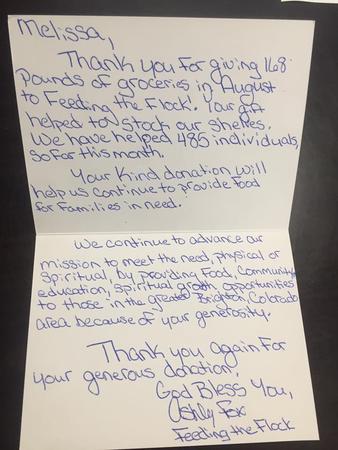 Melissa,
Thank you for giving 168
pounds of groceries in August
to Feeding the Flock! Your gift
helped to stock our shelves.
We have helped 485 individuals,
so far this month.
Your kind donation will
help us continue to provide food
for families in need.
We continue to advance our
mission to meet the need, physical or
spiritual, by providing food, community
education, spiritual growth opportunities
to those in the greater Brighton, Colorado
area because of your generosity.
Thank you again for
your generous donation!
God Bless You,
Ashly Fox
Feeding the Flock